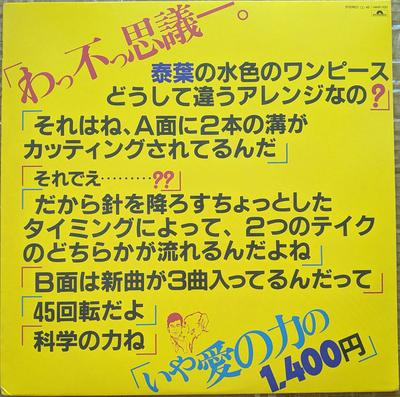 STEREO
Polydor
「わっ不っ思議ー。
泰葉の水色のワンピース
どうして違うアレンジなの?」
「それはね、A面に2本の溝が
カッティングされてるんだ」
「それでえ………??」
「だから針を降ろすちょっとした
タイミングによって、2つのテイク
のどちらかが流れるんだよね」
「B面は新曲が3曲入ってるんだって」
「45回転だよ」
「科学の力ね」
「いや愛の力の
1,400円」